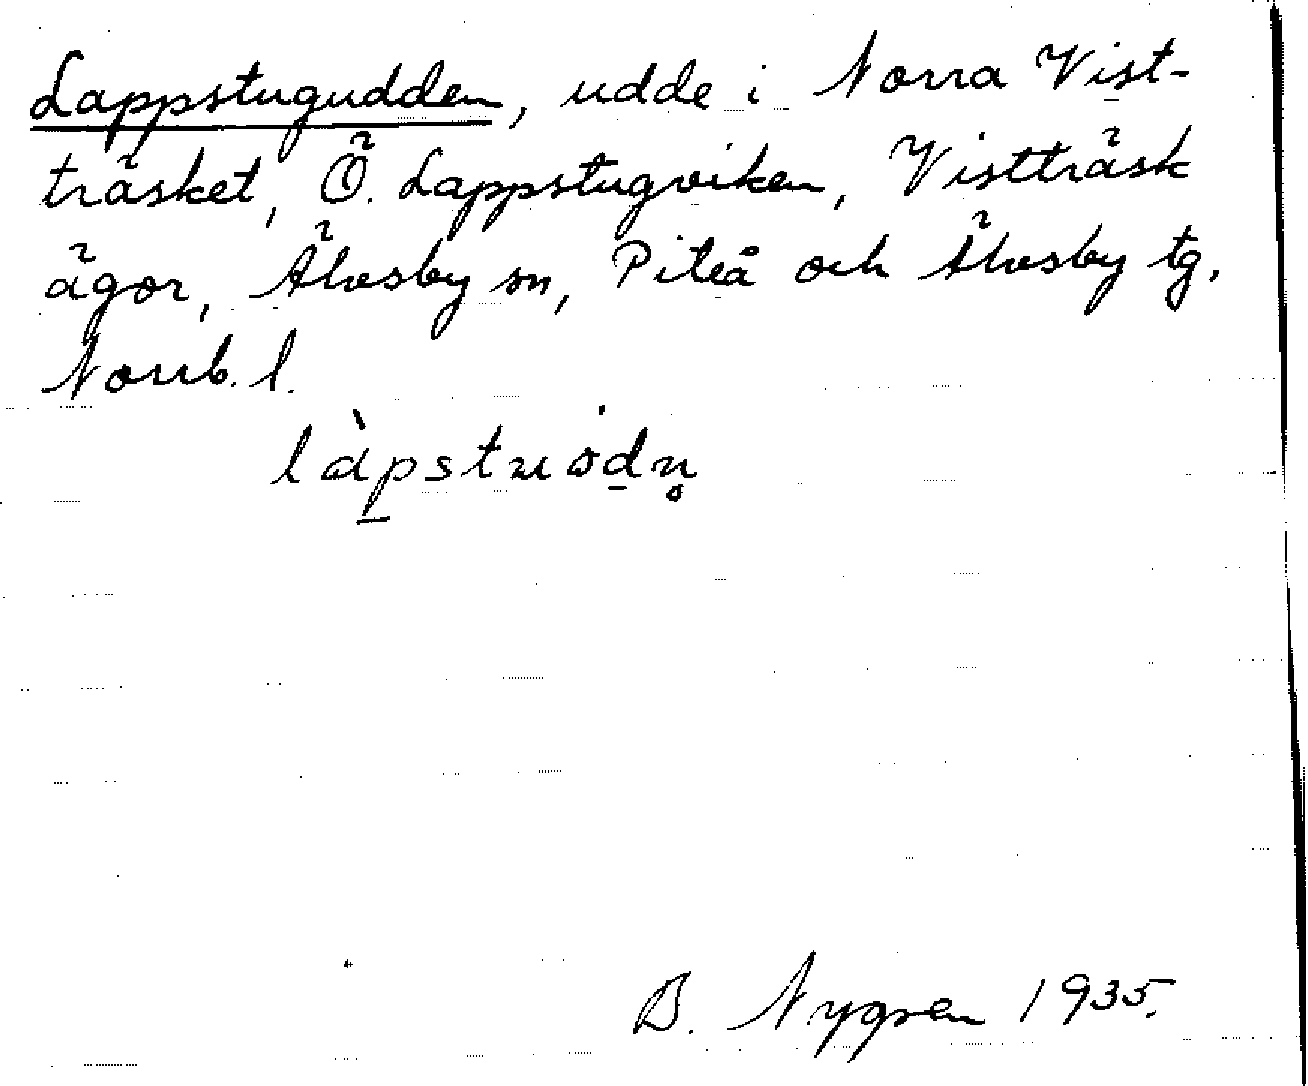 Lappstugudden, udde i Norra Vist-
träsket, Ö. Lappstugviken, Vistträsk
ägor, Älvsby sn, Piteå och Älvsby tg,
Norrb. l.
làpstuödn̥
B. Nygren 1935.